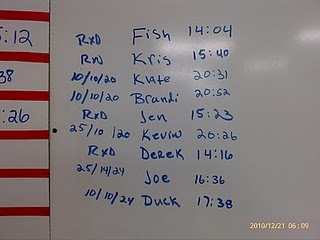 :12
RXD Fish 14:04
RXD Kris 15:40
38
10/10/20 Kate 20:31
10/10/20 Brandi 20:52
:26
RXD Jen 15:23
25/10/20 Kevin 20:26
RXD Derek 14:16
25/14/24 Joe 16:36
10/10/24 Duck 17:38
2010/12/21 06:09